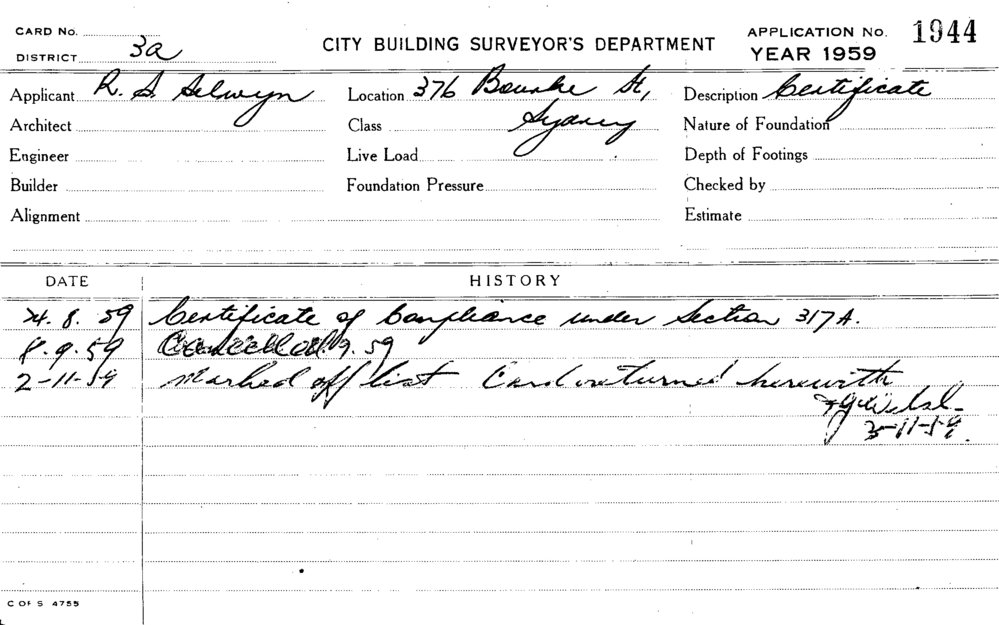 CARD No.
DISTRICT 3a
CITY BUILDING SURVEYOR'S DEPARTMENT
APPLICATION No. 1944
YEAR 1959
Applicant R. S. Selwyn
Location 376 Bourke St,
Description Certificate
Architect
Class Sydney
Nature of Foundation
Engineer
Live Load
Depth of Footings
Builder
Foundation Pressure
Checked by
Alignment
Estimate
DATE HISTORY
24. 8. 59 Certificate of Compliance under Section 317A.
8.9.59 Cancelled 9. 59
2-11-59 Marked off list Card returned herewith
3-11-59.
C OF S 4755